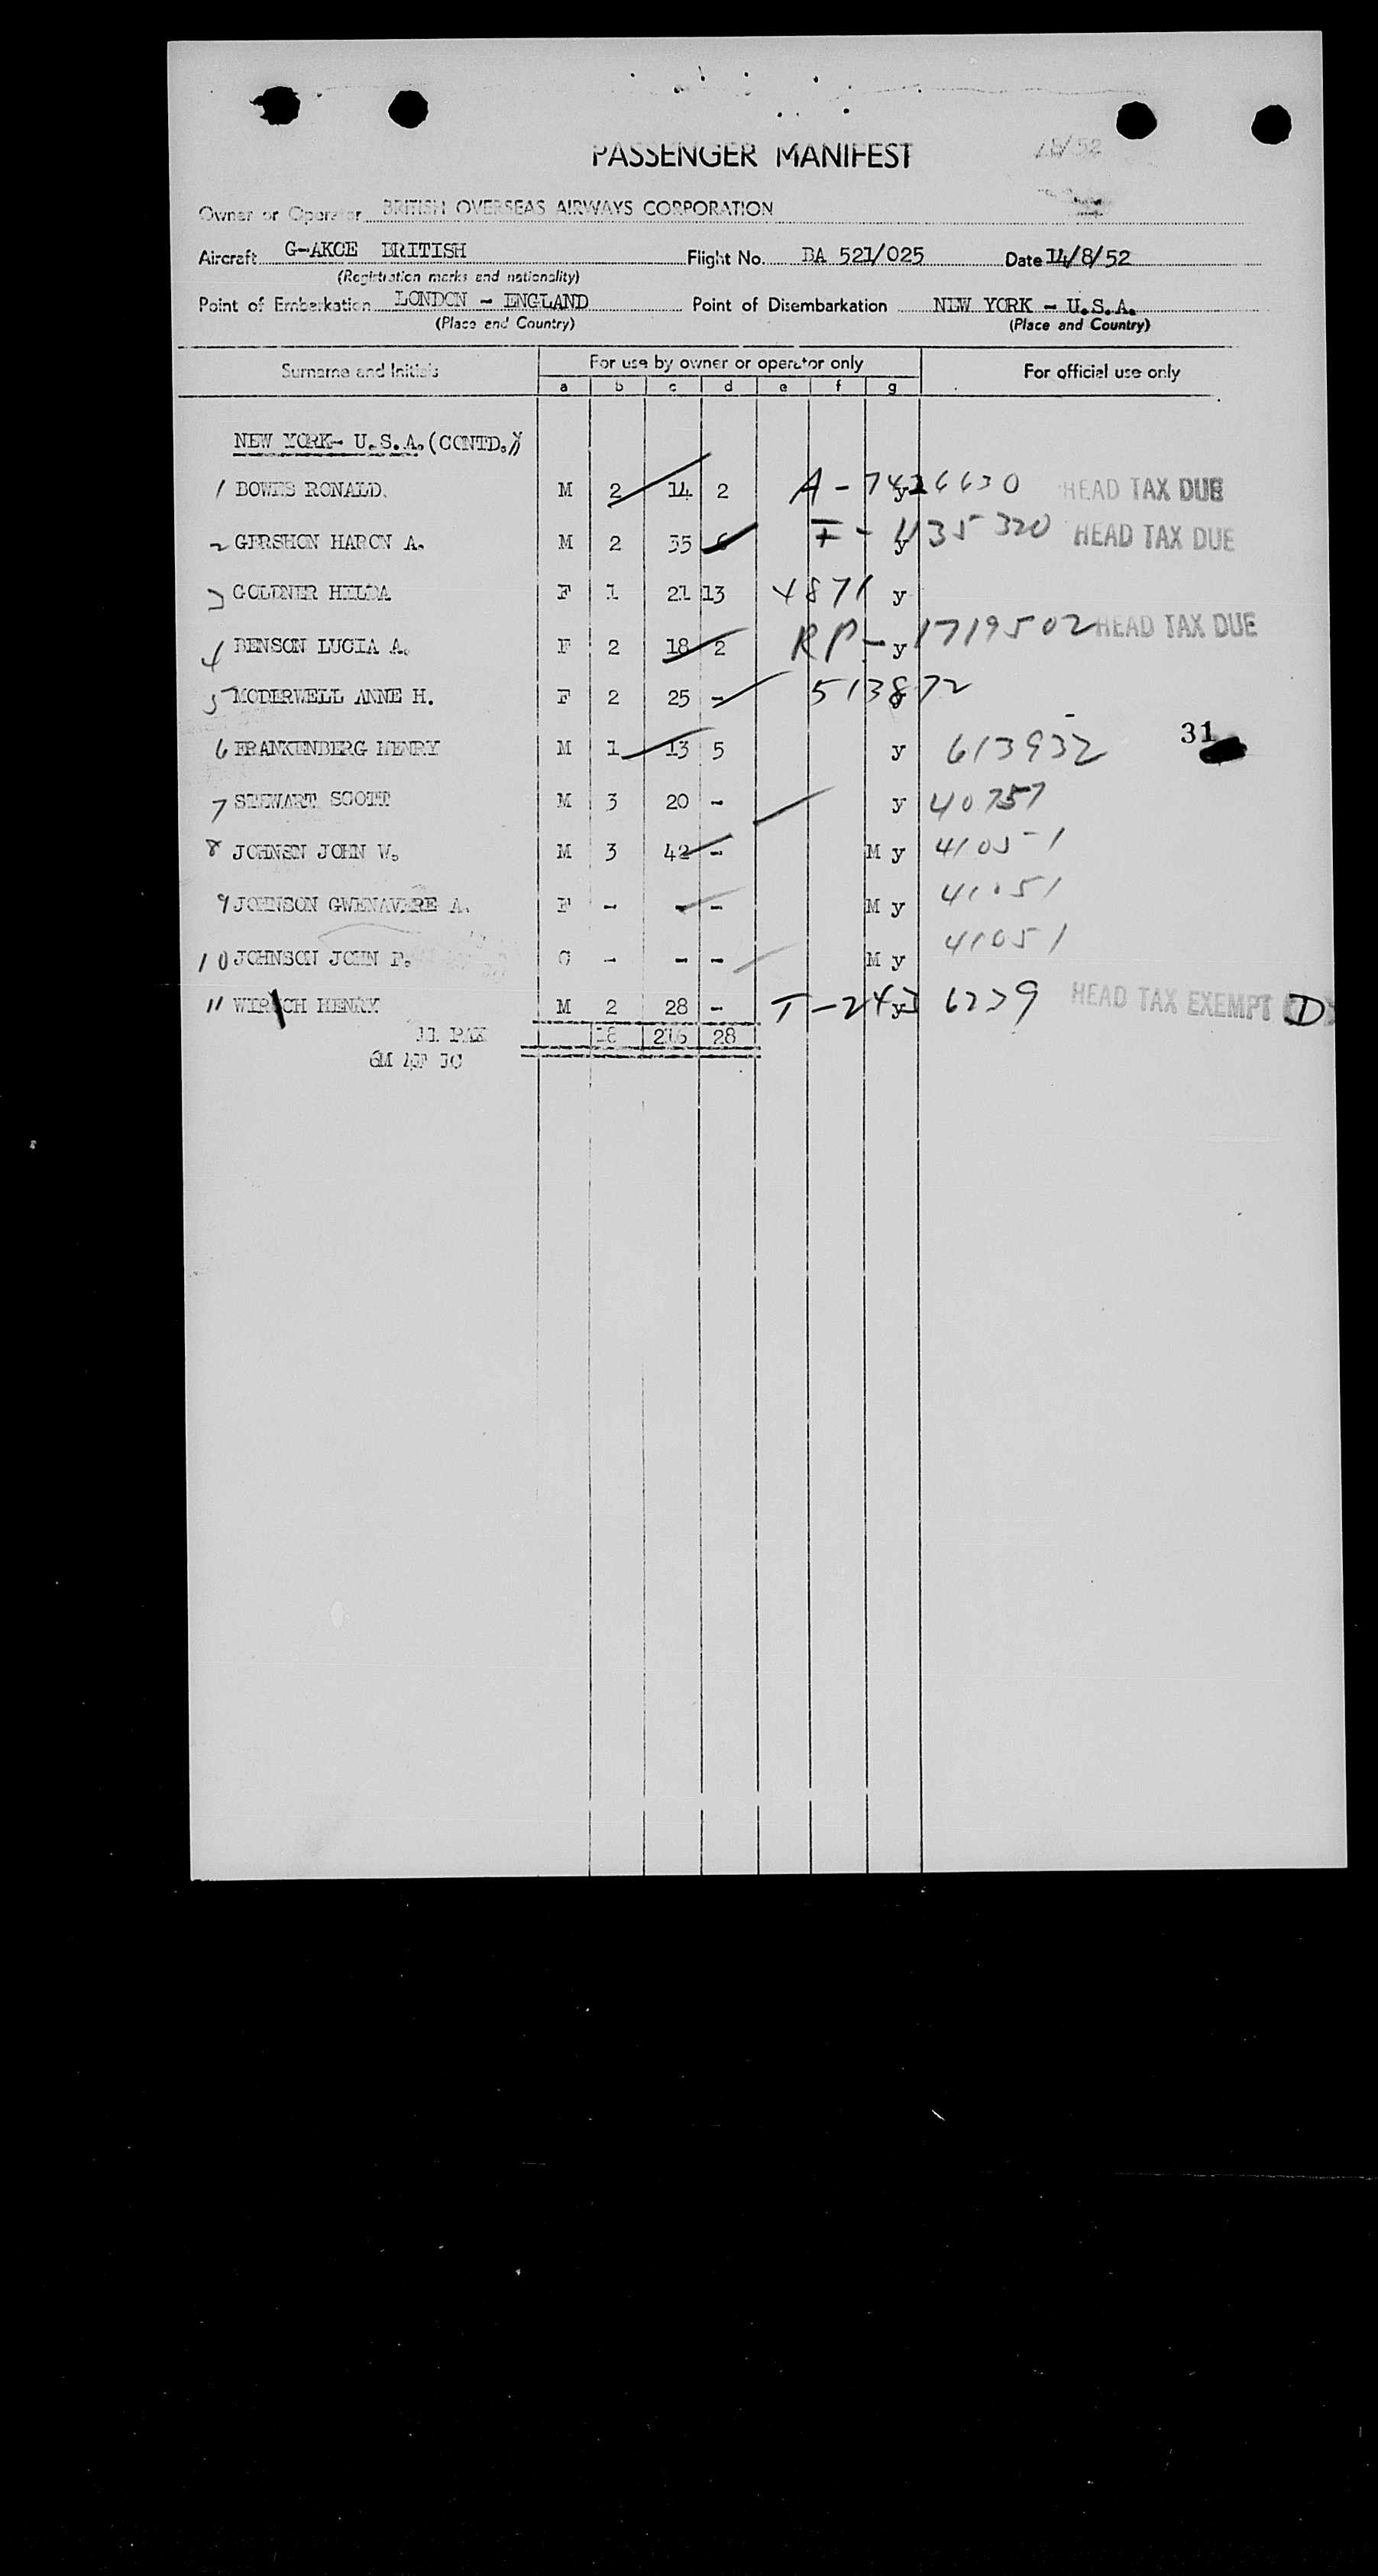 PASSENGER MANIFEST
Owner or Operator BRITISH OVERSEAS AIRWAYS CORPORATION
Aircraft G-AKCE BRITISH Flight No. BA 521/025 Date 14/8/52
(Registration marks and nationality)
Point of Embarkation LONDON - ENGLAND Point of Disembarkation NEW YORK - U.S.A.
(Place and Country) (Place and Country)
Surname and Initials For use by owner or operator only For official use only
a b c d e f g
NEW YORK- U.S.A.(CONTD.)
1 BOWES RONALD. M 2 14 2 A-7426630 y HEAD TAX DUE
2 GERSHON HARON A. M 2 35 6 y HEAD TAX DUE
3 GOLDNER HILDA F 1 21 13 4871 y
4 BENSON LUCIA A. F 2 18 2 RP- y 1719502 HEAD TAX DUE
5 MCDERWELL ANNE H. F 2 25 - 513872
6 FRANKENBERG HENRY M 1 13 5 y 613932 31
7 STEWART SCOTT M 3 20 - y 40757
8 JOHNSN JOHN W. M 3 42 - M y 41051
9 JOHNSON GWENAVERE A. F - - - M y 41051
10 JOHNSON JOHN P. C - - - M y 41051
11 WIRSCH HENRY M 2 28 - y 6239 HEAD TAX EXEMPT D
11 PAX 18 216 28
6M 4F 1C